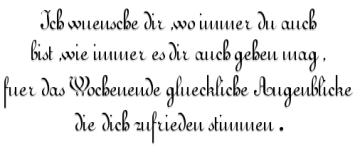 Ich wuensche dir ,wo immer du auch
bist ,wie immer es dir auch gehen mag ,
fuer das Wochenende glueckliche Augenblicke
die dich zufrieden stimmen .